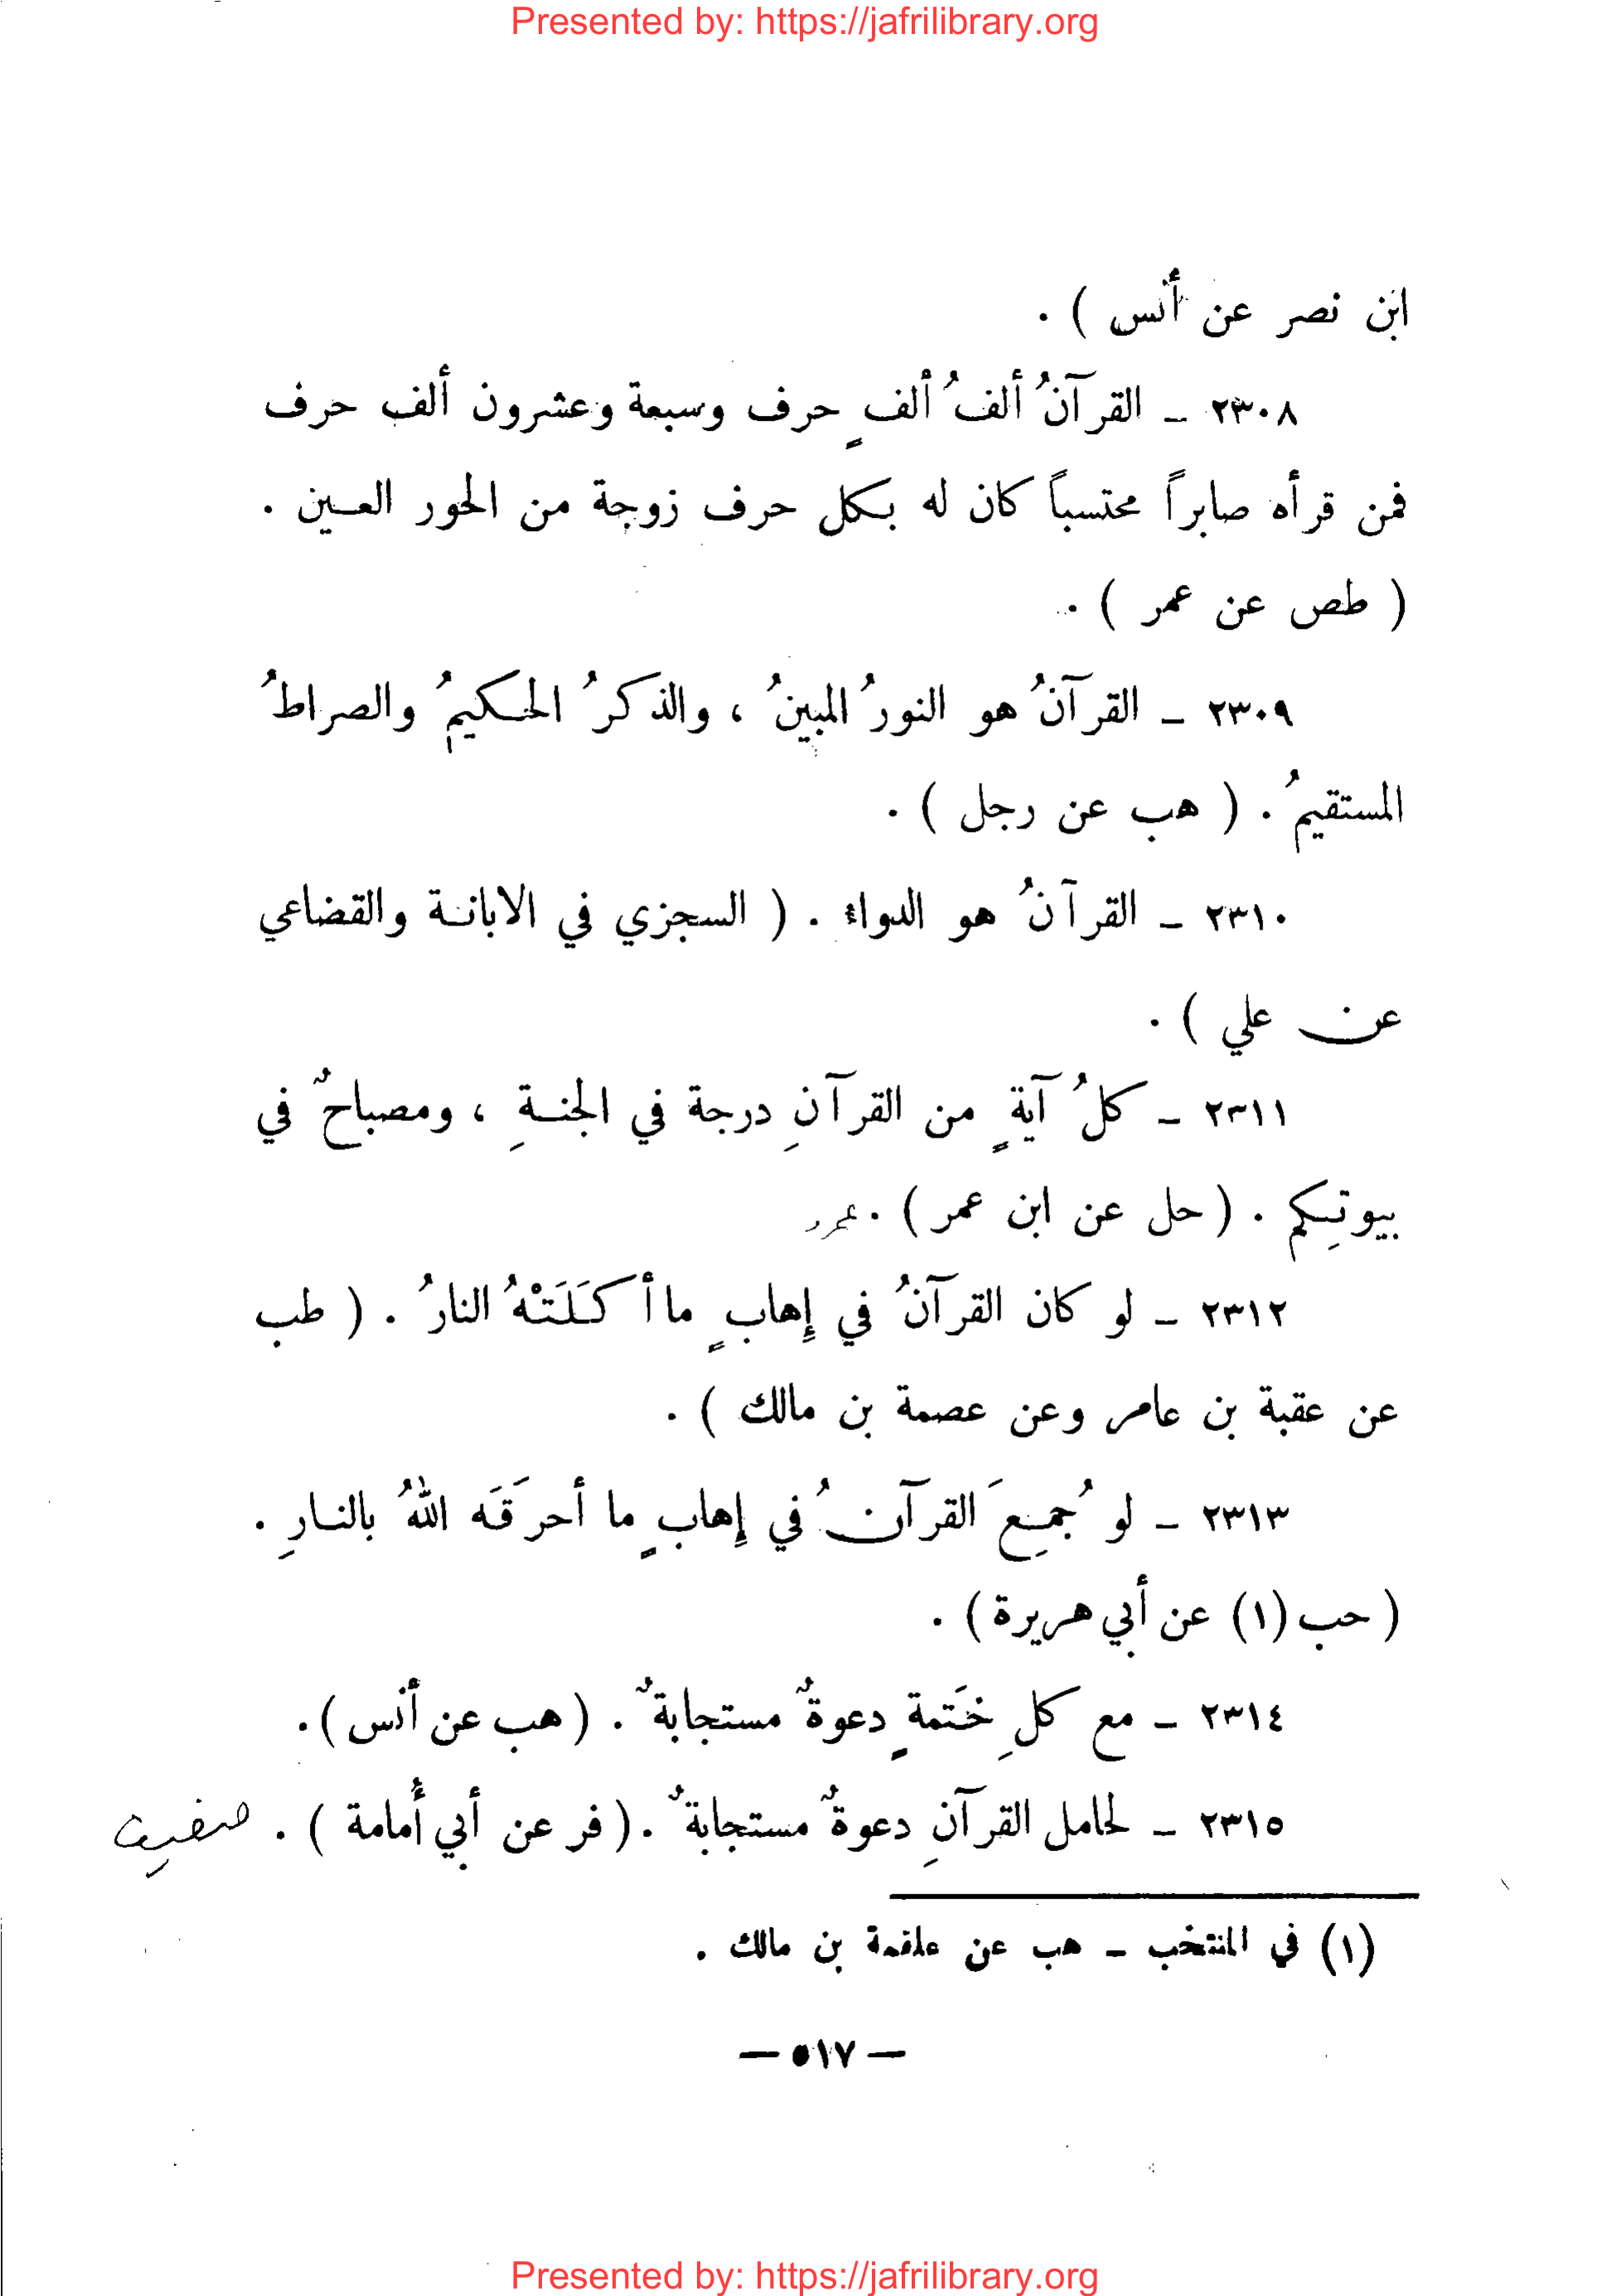 Presented by: https://jafrilibrary.org
ابن نصر عن أنس ) .
٢٣٠٨ ـ القرآنُ ألفُ ألفٍ حرف وسبعة وعشرون ألف حرف
فمن قرأه صابراً محتسباً كان له بكل حرف زوجة من الحور العين .
( طص عن عمر ) .
٢٣٠٩ ـ القرآنُ هو النورُ المبينُ ، والذكرُ الحكيمُ والصراطُ
المستقيمُ . ( هب عن رجل ) .
٢٣١٠ ـ القرآنُ هو الدواء . ( السجزي في الابانة والقضاعي
عن علي ) .
٢٣١١ ـ كلُ آيةٍ من القرآنِ درجة في الجنةِ ، ومصباحٌ في
بيوتِكم . ( حل عن ابن عمر ) .
٢٣١٢ ـ لو كان القرآنُ في إِهابٍ ما أكَلَتْهُ النارُ . ( طب
عن عقبة بن عامر وعن عصمة بن مالك ) .
٢٣١٣ ـ لو جُمِعَ القرآنُ في إِهابٍ ما أحرَقَه اللهُ بالنارِ .
( حب (١) عن أبي هريرة ) .
٢٣١٤ ـ مع كلِ خَتمةٍ دعوةٌ مستجابةٌ . ( هب عن أنس ) .
٢٣١٥ ـ لحامل القرآنِ دعوةٌ مستجابةٌ . ( فر عن أبي أُمامة ) . ضعيف
(١) في المنتخب ـ هب عن علقمة بن مالك .
— ٥١٧ —
Presented by: https://jafrilibrary.org